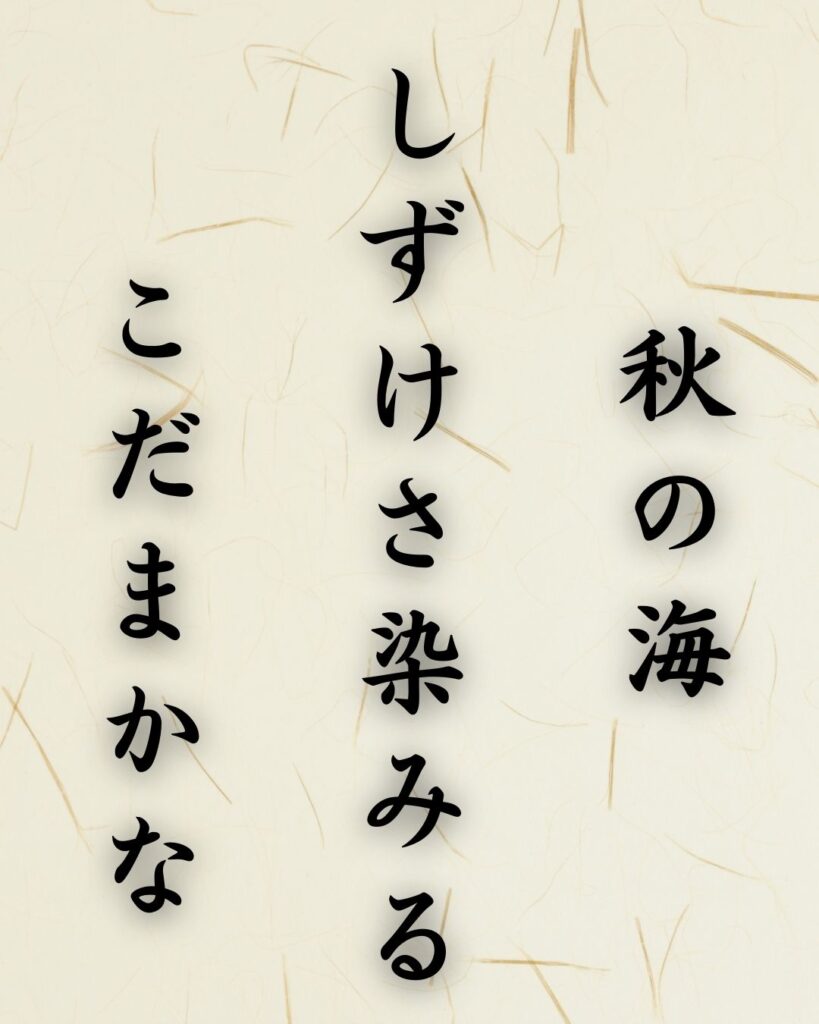 秋の海
しずけさ染みる
こだまかな